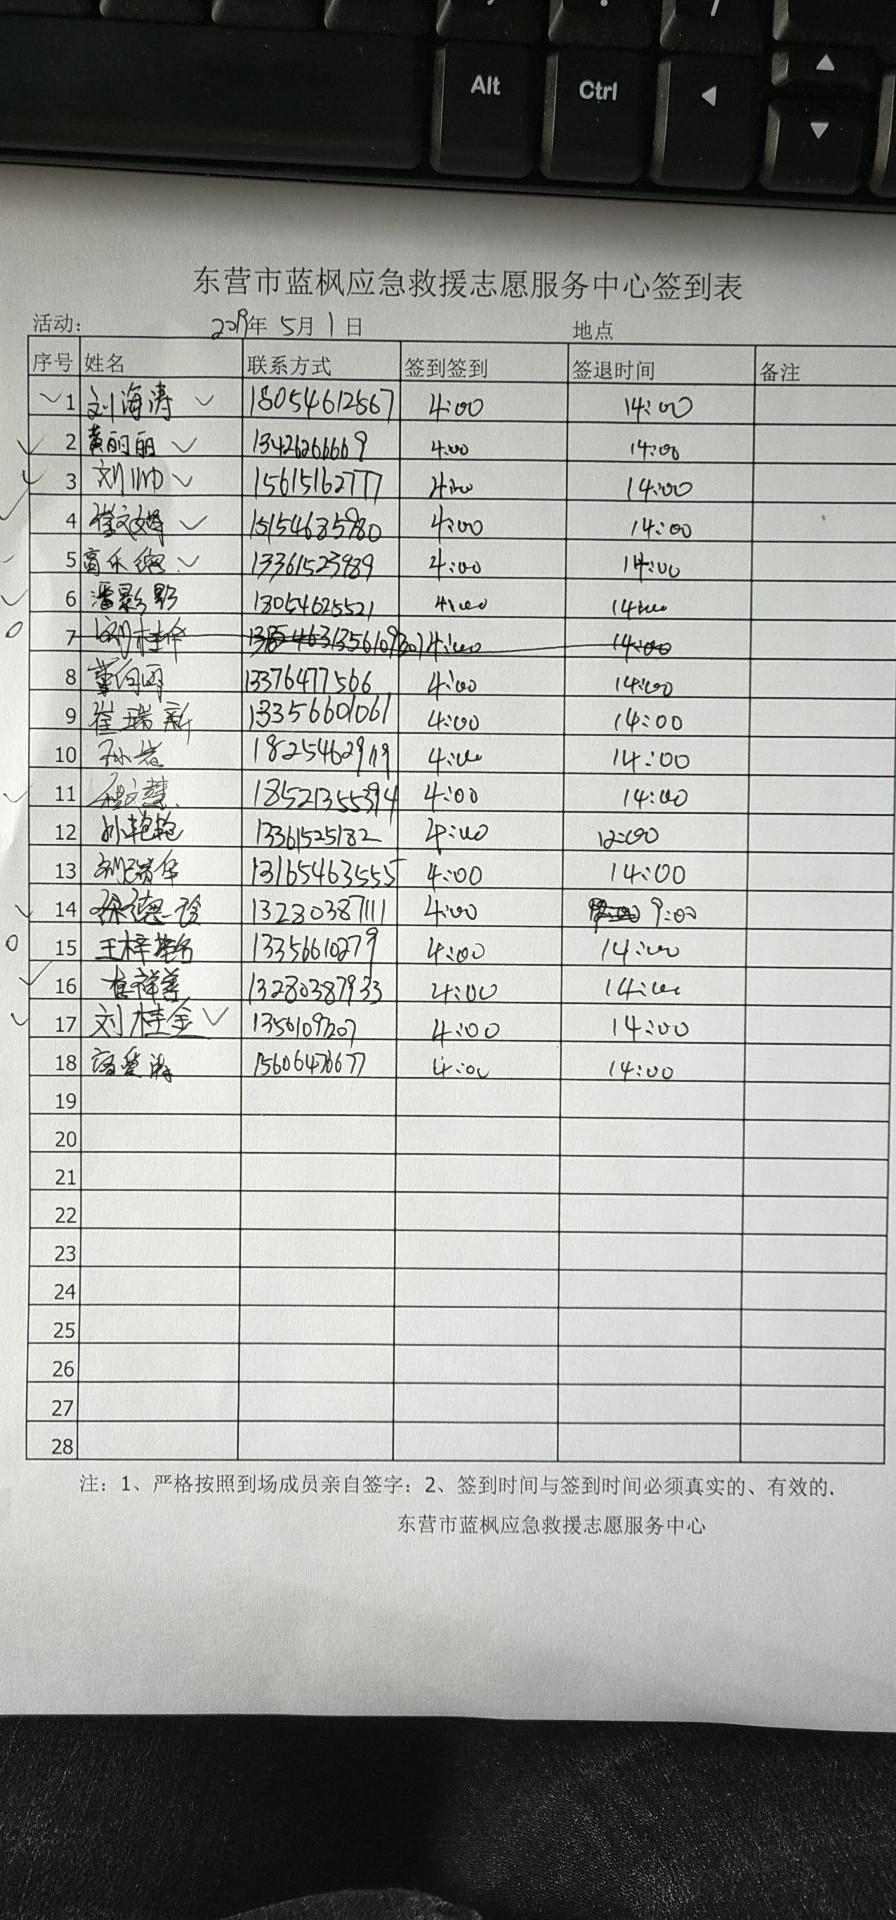 Alt
Ctrl
东营市蓝枫应急救援志愿服务中心签到表
活动： 2019年 5月 1日 地点
序号 姓名 联系方式 签到签到 签退时间 备注
1 刘海涛 18054612567 4:00 14:00
2 黄丽丽 13426266669 4:00 14:00
3 刘帅 15615162777 4:00 14:00
4 15154635980 4:00 14:00
5 13361523989 4:00 14:00
6 潘影影 18054625521 4:00 14:00
7 刘桂 4:00 14:00
8 13376477566 4:00 14:00
9 崔瑞新 13356601061 4:00 14:00
10 孙岩 18254629119 4:00 14:00
11 18521355394 4:00 14:00
12 孙艳艳 13361525182 4:00 12:00
13 刘瑞华 13165463555 4:00 14:00
14 徐德 13280387111 4:00 9:00
15 王梓 13356610279 4:00 14:00
16 祥善 13280387933 4:00 14:00
17 刘桂金 1350109207 4:00 14:00
18 15606476677 4:00 14:00
19
20
21
22
23
24
25
26
27
28
注：1、严格按照到场成员亲自签字：2、签到时间与签到时间必须真实的、有效的.
东营市蓝枫应急救援志愿服务中心